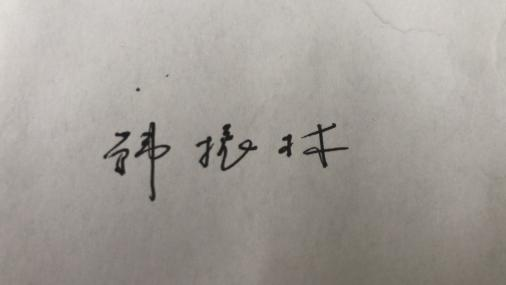 韩振林